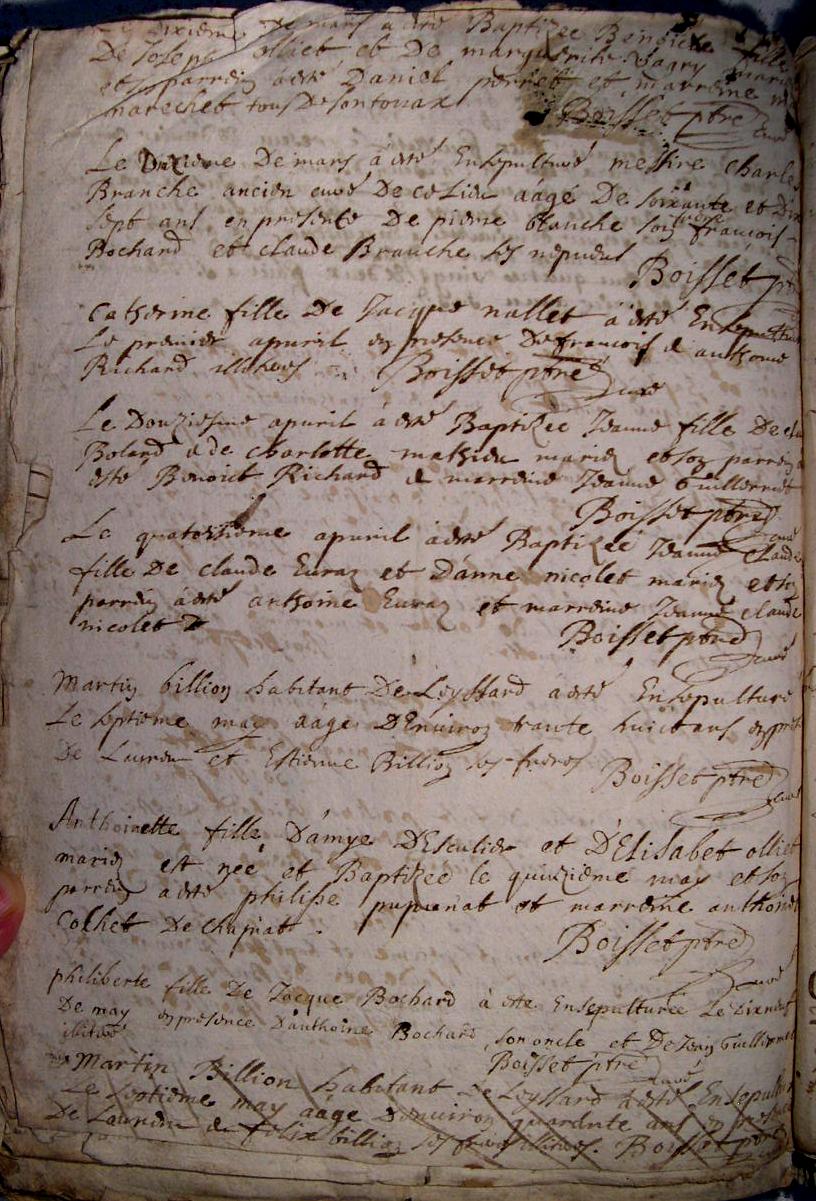 dixiéme De mars à esté Baptizee Benoiste fille
De Joseph olliet et De marguerite mariez
et parrein à esté Daniel perret et marreine
marechet tous De
Boisset ptre curé
Le Dixiéme De mars à esté Ensepulturé messire Charles
Branche ancien curé De ce Lieu aagé De soixante et Dix
sept ans en presence De pierre blanche son frere françois
Bochard et claude Branche ses nepveus
Boisset p
Catherine fille De Jacque nallet à esté Ensepultur
Le premier apvril en presence De francois & anthoine
Richard illiteres Boisset ptre curé
Le Douziesme apvril à esté Baptizée Jeanne fille De
Boland & de Charlotte mathieu mariez et son parrein a
esté Benoict Richard & marreine Jeanne Guillermet
Boisset ptre curé
Le quatorzieme apvril à esté Baptizée Jeanne Claude
fille De claude Euraz et D'anne nicolet mariez et son
parrein à esté anthoine Euraz et marreine Jeanne claude
nicolet
Boisset ptre curé
Martin billion habitant De Leyssard à esté Ensepulturé
Le septiéme may aagé D'Environ trante huict ans en pres
De Laurent et Estienne Billion ses freres
Boisset ptre curé
Anthoinette fille D'amye D'Escuties et D'Elisabet olliet
mariez est nee et Baptizee le quinzieme may et son
parrein à esté philippe et marreine anthoinet
Collet De chapiat .
Boisset ptre curé
philiberte fille De Jacque Bochard à esté Ensepulturée Le Dixneuf
De may en presence D'anthoine Bochard, son oncle et De Jean Guillermet
illiteré
Boisset ptre curé
Martin Billion habitant De Leyssard à esté Ensepultur
Le septiéme may aagé D'environ quarante ans en presence
De Laurent & felix billion ses freres illiteres. Boisset ptre